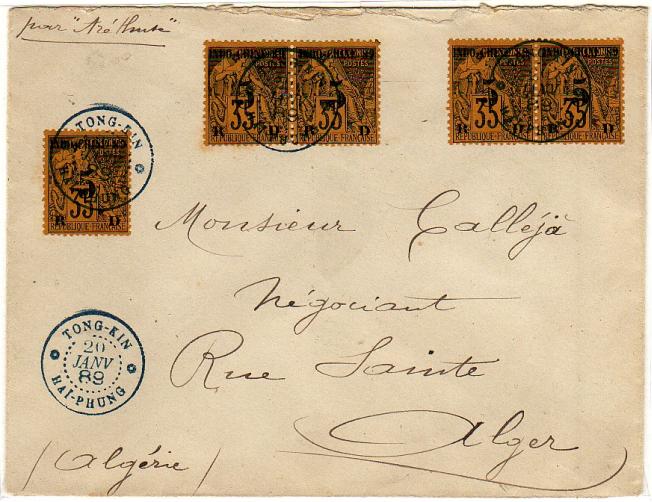 par "Aréthuse"
INDO-CHINE 89 INDO-CHINE 89 INDO-CHINE 89 INDO-CHINE 89
POSTES POSTES POSTES POSTES
5 5 5 5
35 35 35 35
R D R D R D R D
REPUBLIQUE FRANÇAISE REPUBLIQUE FRANÇAISE REPUBLIQUE FRANÇAISE REPUBLIQUE FRANÇAISE
TONG-KIN
INDO-CHINE 89
5
35
R D
REPUBLIQUE FRANÇAISE
Monsieur Callėjà
Négociant
TONG-KIN
20
JANV
89
HAI-PHUNG
Rue Sainte
Alger
(Algérie)